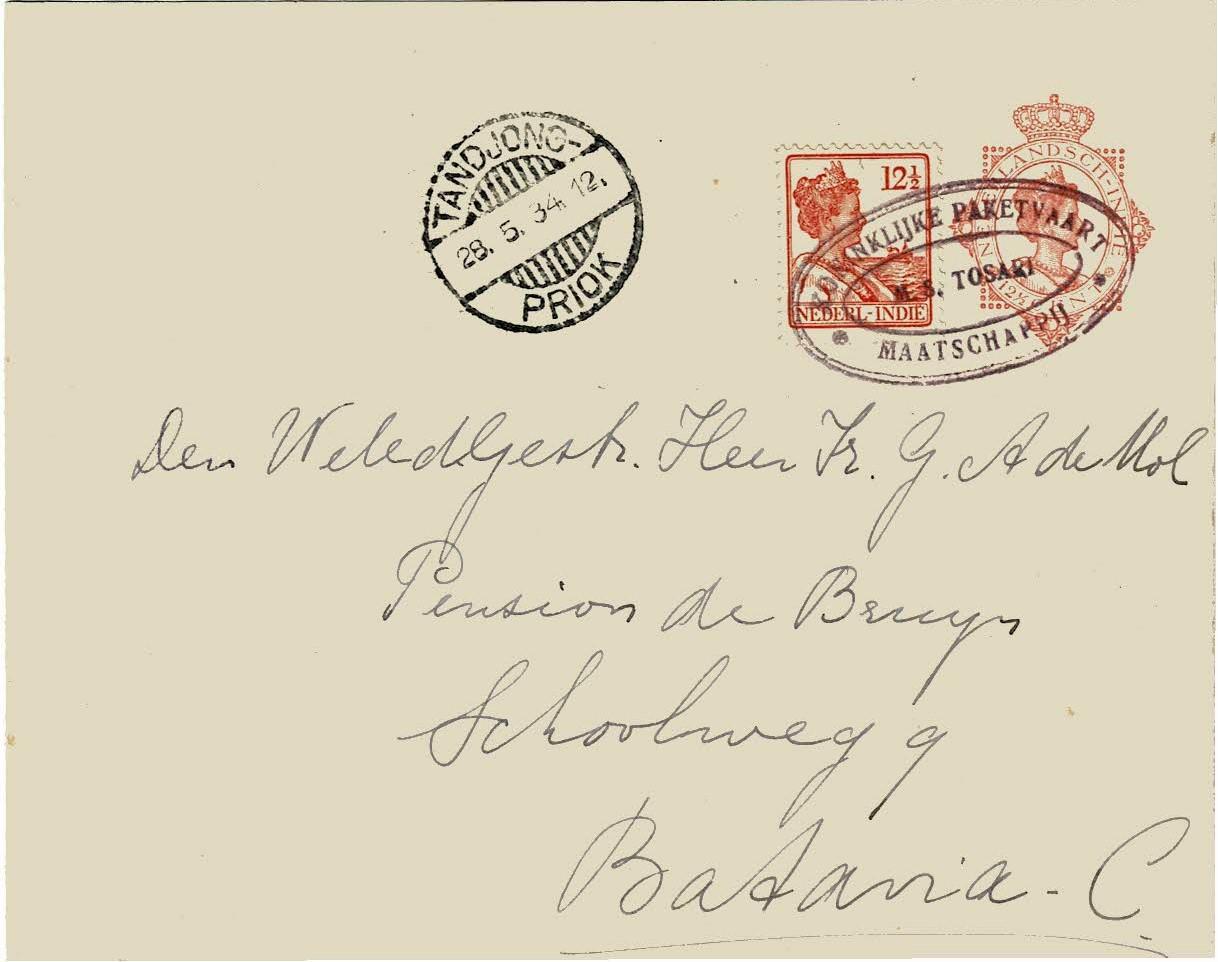 TANDJONG-
28. 5. 34 12.
PRIOK
12½
NEDERL-INDIË
NEDERLANDSCH-INDIË
12½ CENT
KONINKLIJKE PAKETVAART
M.S. TOSARI
MAATSCHAPPIJ
Den WeledGestr. Heer Ir. G. A de Mol
Pension de Bruyn
Schoolweg 9
Batavia-C